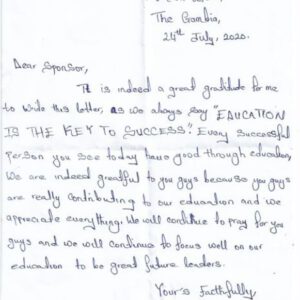 The Gambia,
24th July, 2020.
Dear Sponsor,
It is indeed a great gratitude for me
to write this letter, as we always say "EDUCATION
IS THE KEY TO SUCCESS". Every successful
person you see today have good through education,
We are indeed greatful to you guys because you guys
are really contributing to our education and we
appreciate everything. We will continue to pray for you
guys and we will continue to focus well on our
education to be great future leaders.
Your's Faithfully,